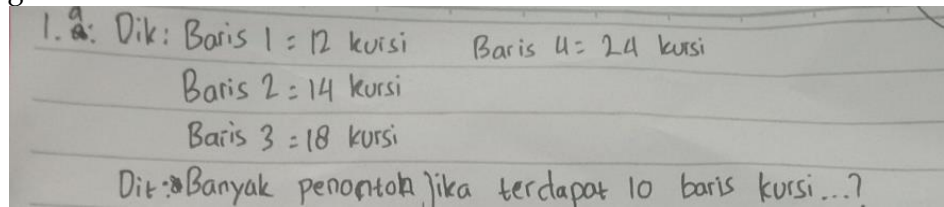 1. a. Dik: Baris 1 = 12 kursi Baris 4 = 24 kursi
Baris 2 = 14 kursi
Baris 3 = 18 kursi
Dit: Banyak penonton jika terdapat 10 baris kursi...?